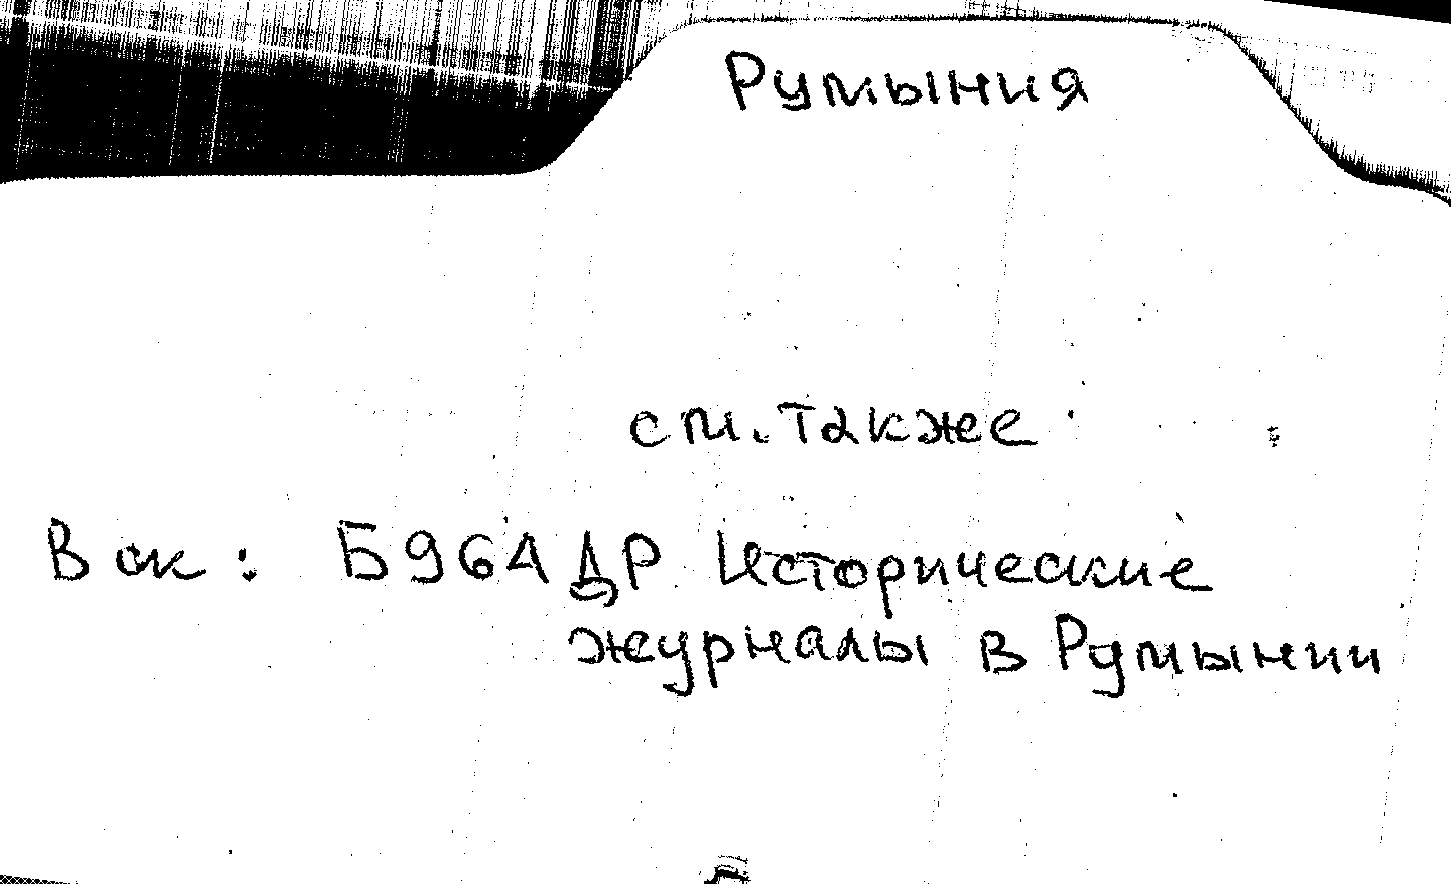 Румыния
см. также
В ск: Б964ДР Исторические
журналы в Румынии